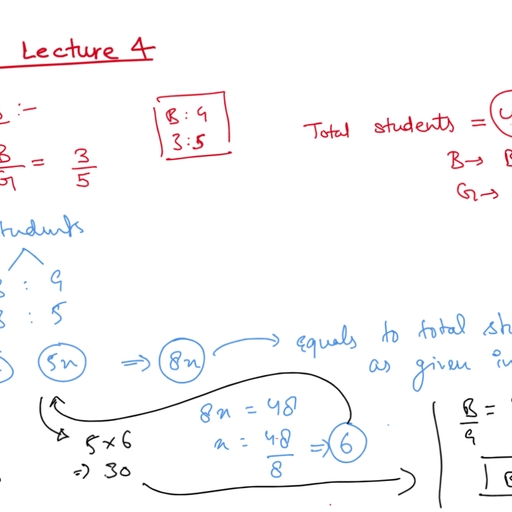 Lecture 4
:-
B : G
3 : 5
B/G = 3/5
Total students =
B →
G →
students
: G
: 5
5x ⇒ 8x → equals to total
as given in
8x = 48
x = 48/8 ⇒ 6
5 x 6
⇒ 30
B/G =